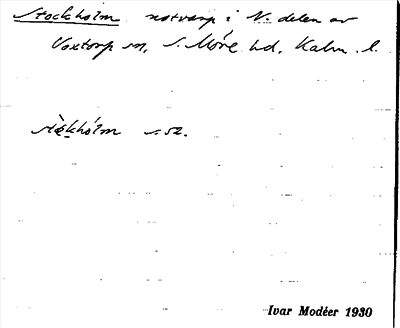 Stockholm notvarp i N. delen av
Voxtorp sn, S. Möre hd, Kalm. l.
stòkhólm s. 52.
Ivar Modéer 1930